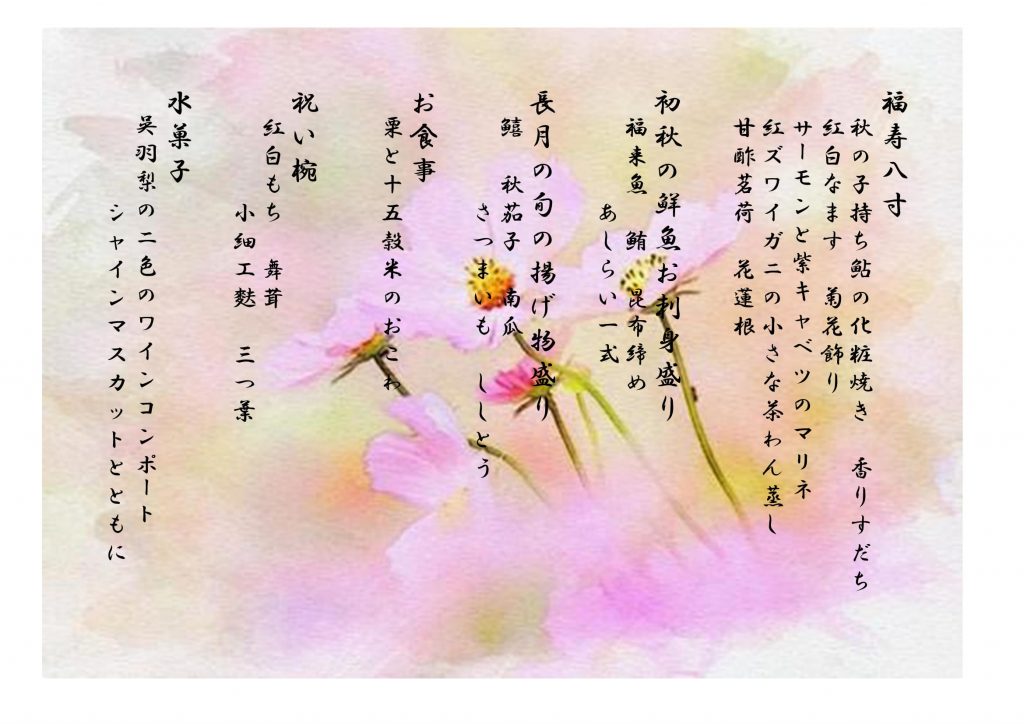 福寿八寸
秋の子持ち鮎の化粧焼き　香りすだち
紅白なます　菊花飾り
サーモンと紫キャベツのマリネ
紅ズワイガニの小さな茶わん蒸し
甘酢茗荷　花蓮根
初秋の鮮魚お刺身盛り
福来魚　鮪　昆布締め
あしらい一式
長月の旬の揚げ物盛り
鱚　秋茄子　南瓜
さつまいも　ししとう
お食事
栗と十五穀米のおこわ
祝い椀
紅白もち　舞茸
小細工麩　三つ葉
水菓子
呉羽梨の二色のワインコンポート
シャインマスカットとともに